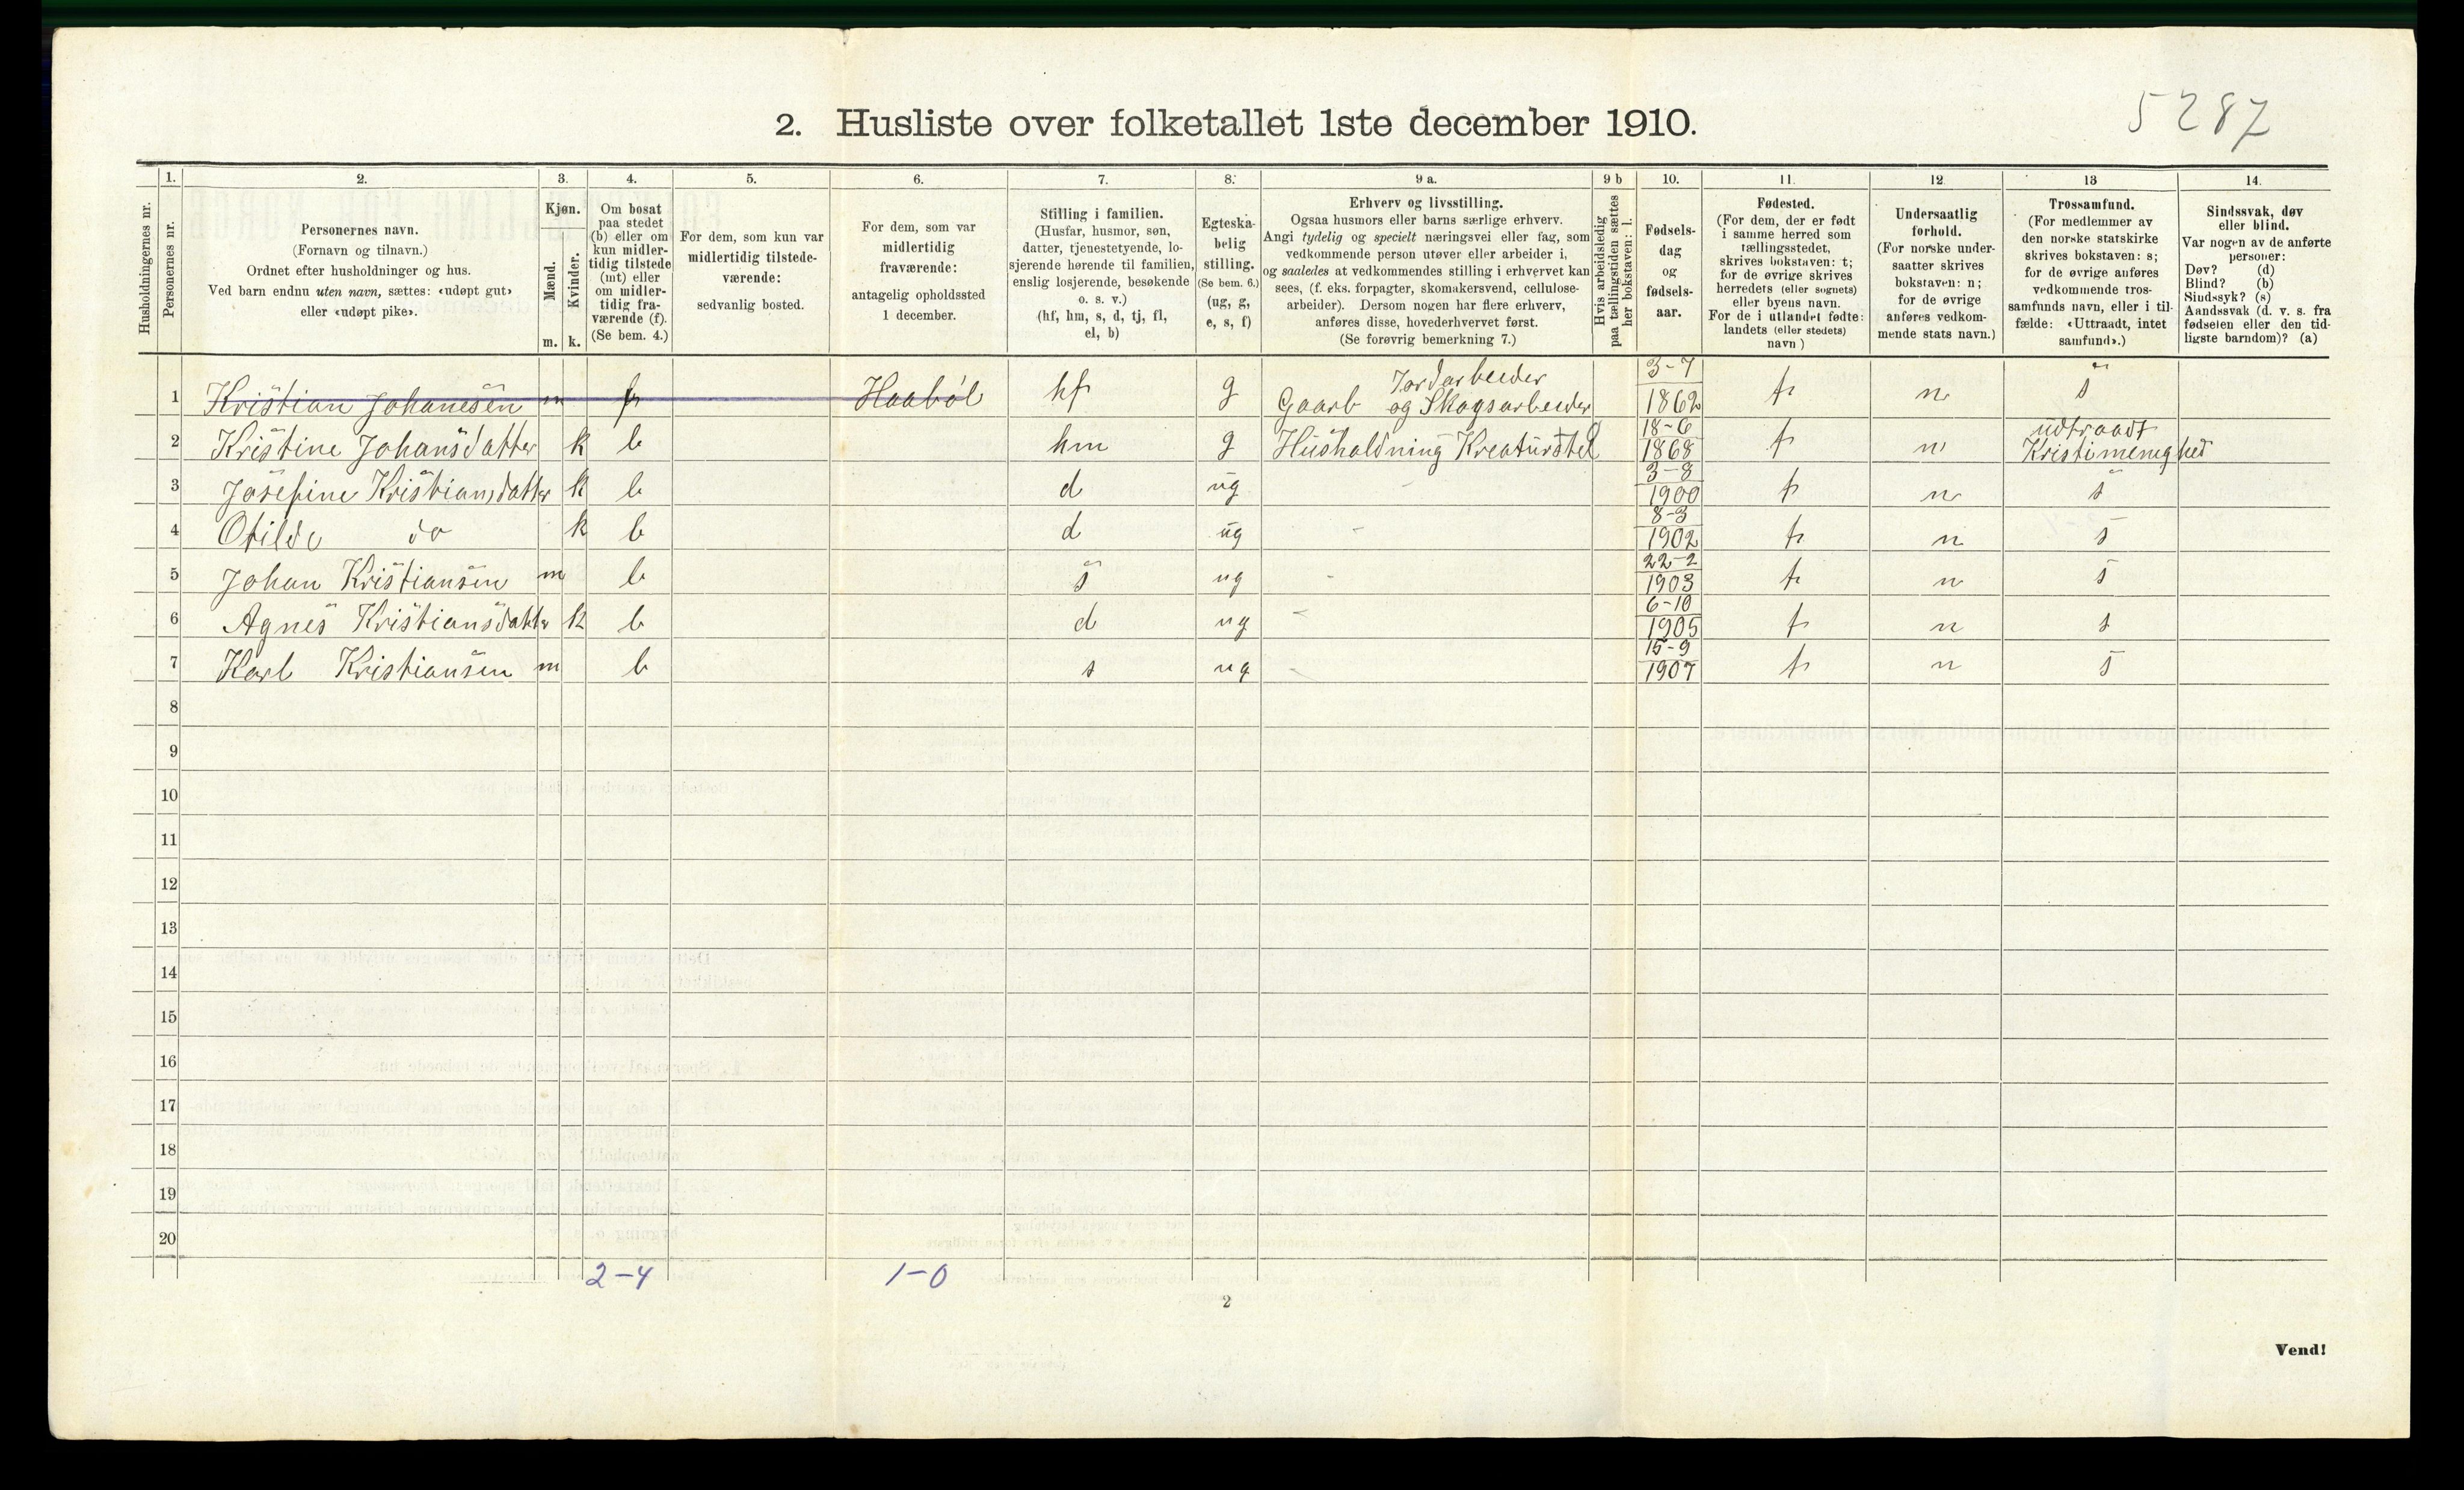 5287
2. Husliste over folketallet 1ste december 1910.
Husholdningernes nr.
1.
Personernes nr.
2.
Personernes navn.
(Fornavn og tilnavn.)
Ordnet efter husholdninger og hus.
Ved barn endnu uten navn, sættes: «udøpt gut»
eller «udøpt pike».
3.
Kjøn.
Mænd.
Kvinder.
m. k.
4.
Om bosat
paa stedet
(b) eller om
kun midler-
tidig tilstede
(mt) eller
om midler-
tidig fra-
værende (f).
(Se bem. 4.)
5.
For dem, som kun var
midlertidig tilstede-
værende:
sedvanlig bosted.
6.
For dem, som var
midlertidig
fraværende:
antagelig opholdssted
1 december.
7.
Stilling i familien.
(Husfar, husmor, søn,
datter, tjenestetyende, lo-
sjerende hørende til familien,
enslig losjerende, besøkende
o. s. v.)
(hf, hm, s, d, tj, fl,
el, b)
8.
Egteska-
belig
stilling.
(Se bem. 6.)
(ug, g,
e, s, f)
9 a.
Erhverv og livsstilling.
Ogsaa husmors eller barns særlige erhverv.
Angi tydelig og specielt næringsvei eller fag, som
vedkommende person utøver eller arbeider i,
og saaledes at vedkommendes stilling i erhvervet kan
sees, (f. eks. forpagter, skomakersvend, cellulose-
arbeider). Dersom nogen har flere erhverv,
anføres disse, hovederhvervet først.
(Se forøvrig bemerkning 7.)
9 b
Hvis arbeidsledig
paa tællingstiden sættes
her bokstaven: l.
10.
Fødsels-
dag
og
fødsels-
aar.
11.
Fødested.
(For dem, der er født
i samme herred som
tællingsstedet,
skrives bokstaven: t;
for de øvrige skrives
herredets (eller sognets)
eller byens navn.
For de i utlandet fødte:
landets (eller stedets)
navn)
12
Undersaatlig
forhold.
(For norske under-
saatter skrives
bokstaven: n;
for de øvrige
anføres vedkom-
mende stats navn.)
13
Trossamfund.
(For medlemmer av
den norske statskirke
skrives bokstaven: s;
for de øvrige anføres
vedkommende tros-
samfunds navn, eller i til-
fælde: «Uttraadt, intet
samfund».)
14.
Sindssvak, døv
eller blind.
Var nogen av de anførte
personer:
Døv? (d)
Blind? (b)
Sindssyk? (s)
Aandssvak (d. v. s. fra
fødselen eller den tid-
ligste barndom)? (a)
1 Kristian Johanesen m f Haabøl hf g Gaarb Jordarbeider og Skogsarbeider 3-7 1862 t n s
2 Kristine Johansdatter k b hm g Husholdning Kreaturstel 18-6 1868 t n udtraadt Kristimenighed
3 Josefine Kristiansdatter k b d ug 3-8 1900 t n s
4 Otilde do k b d ug - 8-3 1902 t n s
5 Johan Kristiansen m b s ug - 22-2 1903 t n s
6 Agnes Kristiansdatter k b d ug - 6-10 1905 t n s
7 Karl Kristiansen m b s ug - 15-9 1907 t n s
8
9
10
11
12
13
14
15
16
17
18
19
20
2-4 1-0
2
Vend!